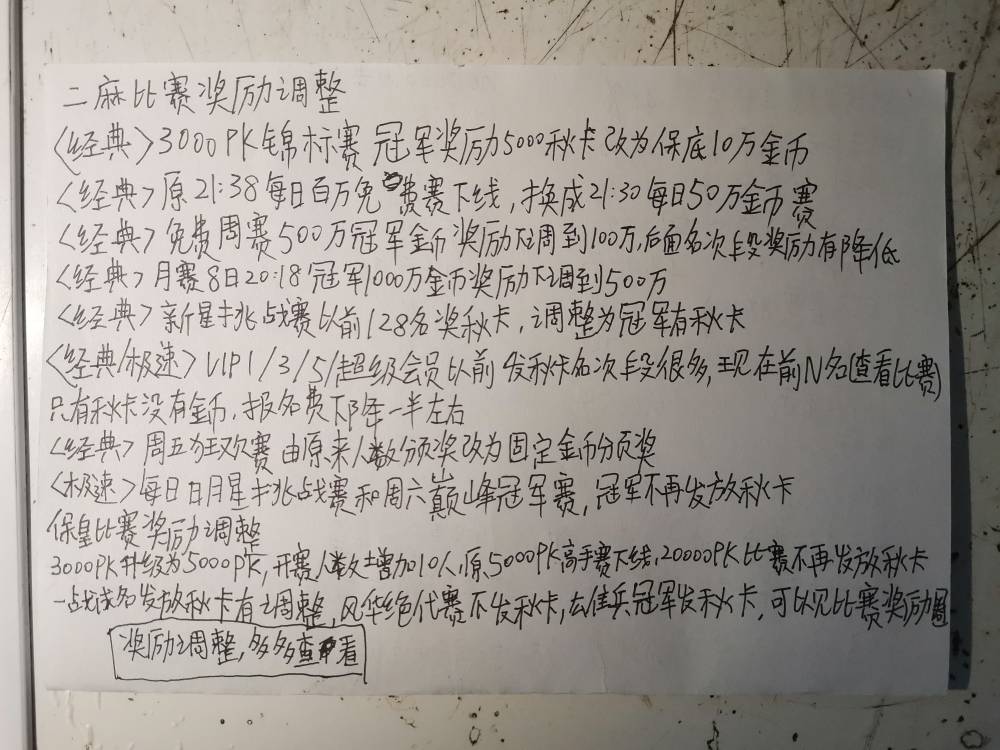 二麻比赛奖励调整
<经典>3000PK锦标赛 冠军奖励5000秋卡改为保底10万金币
<经典>原21:38每日百万免费赛下线,换成21:30每日50万金币赛
<经典>免费周赛500万冠军金币奖励下调到100万,后面名次段奖励有降低
<经典>月赛8日20:18冠军1000万金币奖励下调到500万
<经典>新星挑战赛以前128名奖秋卡,调整为冠军有秋卡
<经典/极速>VIP1/3/5/超级会员以前发秋卡名次段很多,现在前N名(查看比赛)
只有秋卡没有金币,报名费下降一半左右
<经典>周五狂欢赛由原来人数颁奖改为固定金币颁奖
<极速>每日明星挑战赛和周六巅峰冠军赛,冠军不再发放秋卡
保皇比赛奖励调整
3000PK升级为5000PK,开赛人数增加10人,原5000PK高手赛下线,20000PK比赛不再发放秋卡
一战成名发放秋卡有调整,风华绝代赛不发秋卡,去佳兵冠军发秋卡,可以见比赛奖励圈
奖励调整,多多查看